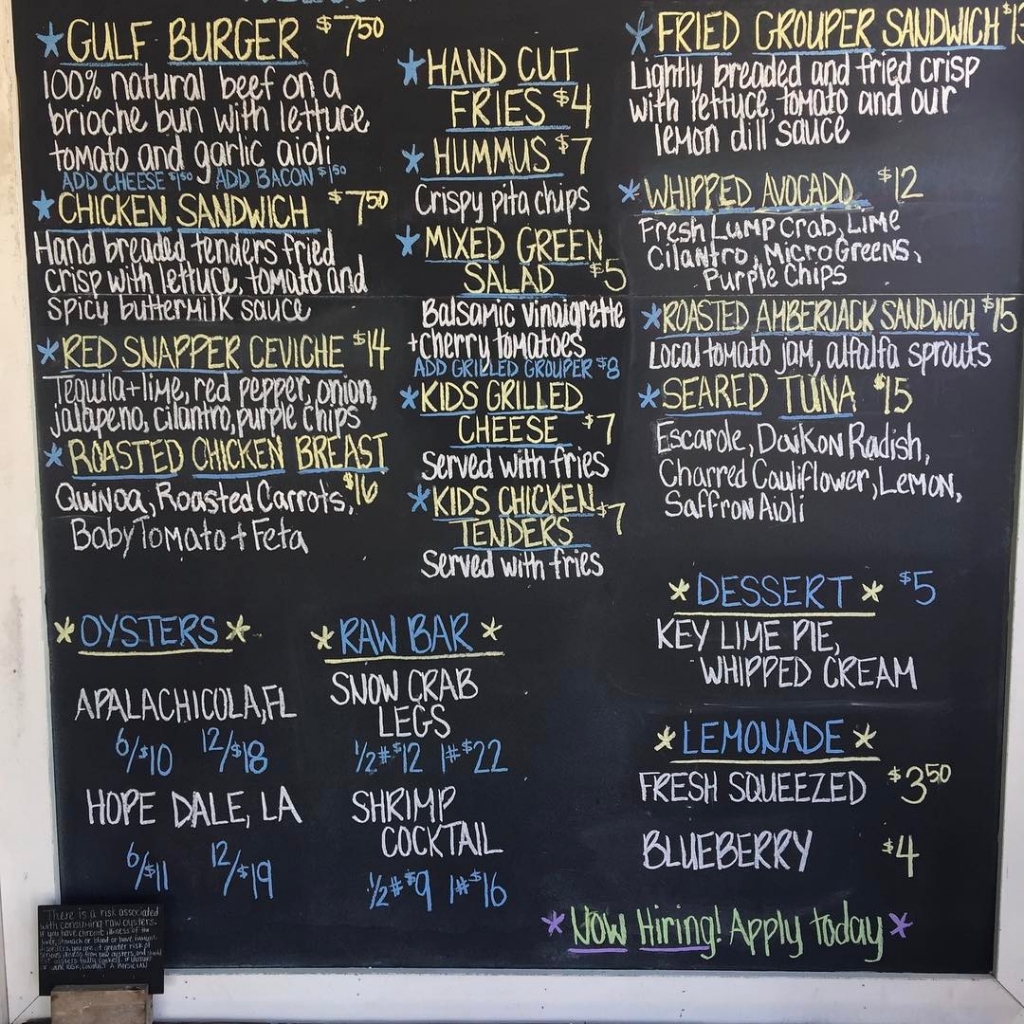 *GULF BURGER $7.50
100% natural beef on a
brioche bun with lettuce
tomato and garlic aioli
ADD CHEESE $1.50 ADD BACON $1.50
*CHICKEN SANDWICH $7.50
Hand breaded tenders fried
crisp with lettuce, tomato and
spicy buttermilk sauce
*RED SNAPPER CEVICHE $14
Tequila+lime, red pepper, onion,
jalapeno, cilantro, purple chips
*ROASTED CHICKEN BREAST
$16
Quinoa, Roasted Carrots,
Baby Tomato + Feta
*HAND CUT
FRIES $4
*HUMMUS $7
Crispy pita chips
*MIXED GREEN
SALAD $5
Balsamic vinaigrette
+cherry tomatoes
ADD GRILLED GROUPER $8
*KIDS GRILLED
CHEESE $7
Served with fries
*KIDS CHICKEN
TENDERS $7
Served with fries
*FRIED GROUPER SANDWICH
Lightly breaded and fried crisp
with lettuce, tomato and our
lemon dill sauce
*WHIPPED AVOCADO $12
Fresh Lump Crab, Lime
Cilantro, Micro Greens,
Purple Chips
*ROASTED AMBERJACK SANDWICH $15
Local tomato jam, alfalfa sprouts
*SEARED TUNA $15
Escarole, Daikon Radish,
Charred Cauliflower, Lemon,
Saffron Aioli
*OYSTERS*
APALACHICOLA, FL
6/$10 12/$18
HOPE DALE, LA
6/$11 12/$19
*RAW BAR*
SNOW CRAB
LEGS
1/2# $12 1# $22
SHRIMP
COCKTAIL
1/2# $9 1# $16
*DESSERT* $5
KEY LIME PIE,
WHIPPED CREAM
*LEMONADE*
FRESH SQUEEZED $3.50
BLUEBERRY $4
*Now Hiring! Apply today*
There is a risk associated
with consuming raw oysters.
if you have chronic illness of the